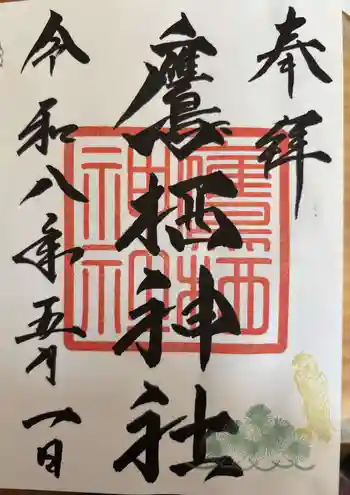 奉拝
鷹栖神社
鷹栖神社
令和八年五月一日